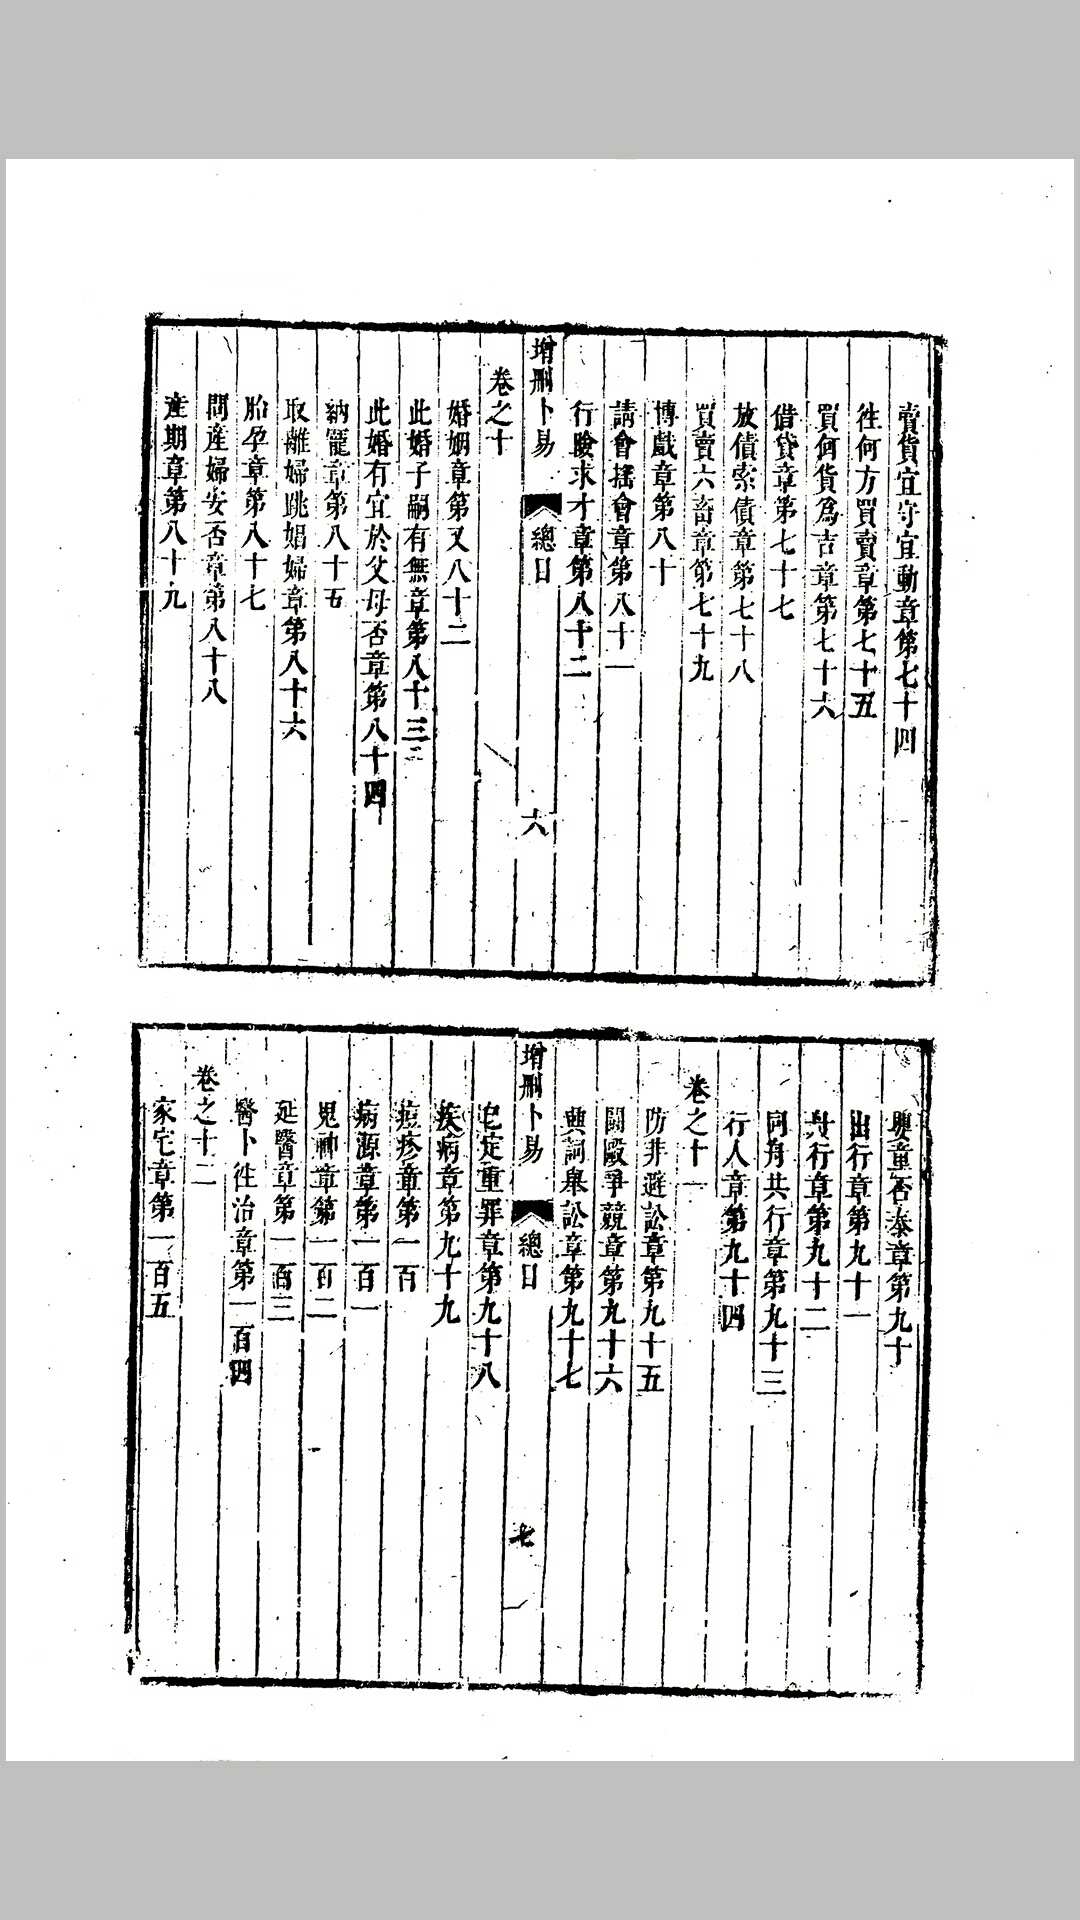 賣貨宜守宜動章第七十四
徃何方買賣章第七十五
買何貨為吉章第七十六
借貸章第七十七
放債索債章第七十八
買賣六畜章第七十九
博戲章第八十
請會搖會章第八十一
行險求才章第八十二
增刪卜易 總目 六
卷之十
婚姻章第又八十二
此婚子嗣有無章第八十三
此婚有宜於父母否章第八十四
納寵章第八十五
取離婦跳娼婦章第八十六
胎孕章第八十七
問產婦安否章第八十八
產期章第八十九
嬰童否泰章第九十
出行章第九十一
舟行章第九十二
同舟共行章第九十三
行人章第九十四
卷之十一
防非避訟章第九十五
鬪毆爭競章第九十六
興詞舉訟章第九十七
增刪卜易 總目 七
已定重罪章第九十八
疾病章第九十九
痘疹章第一百
病源章第一百一
鬼神章第一百二
延醫章第一百三
醫卜徃治章第一百四
卷之十二
家宅章第一百五